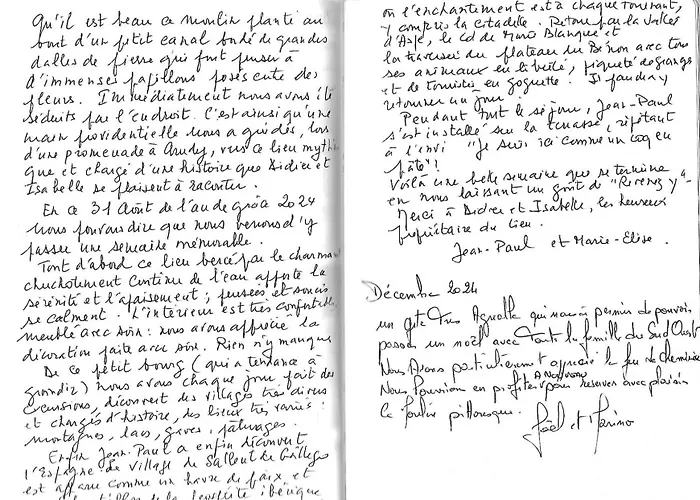 Qu'il est beau ce moulin planté au
bout d'un petit canal bordé de grandes
dalles de pierre qui font penser à
d'immenses papillons posés entre des
fleurs. Immédiatement nous avons été
séduits par l'endroit. C'est ainsi qu'une
main providentielle nous a guidés, lors
d'une promenade à Arudy, vers ce lieu mythi
que et chargé d'une histoire que Didier et
Isabelle se plaisent à raconter.
En ce 31 Août de l'an de grâce 2024
nous pouvons dire que nous venons d'y
passer une semaine mémorable.
Tout d'abord ce lieu bercé par le charmant
chuchotement continu de l'eau apporte la
sérénité et l'apaisement ; pensées et soucis
se calment. L'intérieur est très confortable
meublé avec soin : nous avons apprécié la
décoration faite avec soin. Rien n'y manque
De ce petit bourg (qui a tendance à
grandir) nous avons chaque jour fait des
excursions, découvert des villages très divers
et chargés d'histoire, des lieux très variés :
montagnes, lacs, gaves, pâturages.
Enfin Jean-Paul a enfin découvert
l'Espagne. Le village de Sallent de Gallego
est apparu comme un havre de paix et
ibérique
où l'enchantement est à chaque tournant,
y compris la citadelle. Retour par la vallée
d'Aspe, le col de Marie Blanque et
la traversée du plateau du Bénou avec tous
ses animaux en liberté, piqueté de granges
et de touristes en goguette. Il faudra y
retourner un jour.
Pendant tout le séjour, Jean-Paul
s'est installé sur la terrasse, répétant
à l'envi "Je suis ici comme un coq en
pâte" !
Voilà une belle semaine qui se termine
en nous laissant un goût de "Revenez-y".
Merci à Didier et Isabelle, les heureux
propriétaires du lieu.
Jean-Paul et Marie-Elise.
Décembre 2024
un gîte très agréable qui nous a permis de pouvoir
passer un noël avec toute la famille du Sud Ouest
Nous Avons particulièrement apprécié le feu de cheminée
A Nouveau
Nous Pourrions en profiter pour revenir avec plaisir
Ce pittoresque.
Joël et